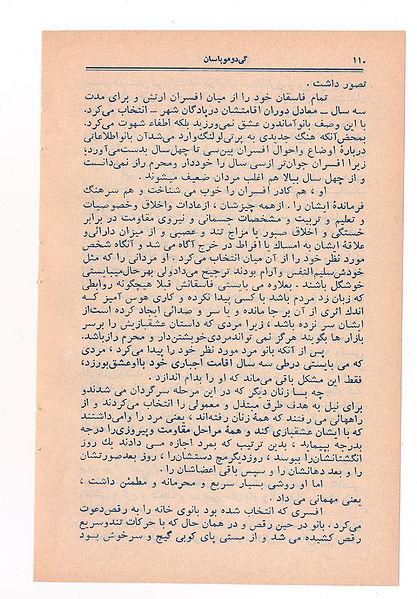 ۱۱۰ گی‌دوموپاسان
تصور داشت .
تمام فاسقان خود را از میان افسران ارتش و برای مدت
سه سال ــ معادل دوران اقامتشان در پادگان شهر ــ انتخاب می‌کرد.
با این وصف بانو آماندون عشق نمی‌ورزید بلکه اطفاء شهوت می‌کرد.
بمحض آنکه هنگ جدیدی به پرتی‌لولنگ وارد می‌شد آن بانو اطلاعاتی
دربارهٔ اوضاع و احوال افسران بین سی تا چهل سال بدست می‌آورد؛
زیرا افسران جوان‌تر از سی سال را خوددار و محرم راز نمی‌دانست
و از چهل سال ببالا هم اغلب مردان ضعیف میشوند .
او ، هم کادر افسران را خوب می شناخت و هم سرهنگ
فرماندهٔ ایشان را . از همه چیزشان ، از عادات و اخلاق و خصوصیات
و تعلیم و تربیت و مشخصات جسمانی و نیروی مقاومت در برابر
خستگی و اخلاق صبور یا مزاج تند و عصبی و از میزان دارائی و
علاقهٔ ایشان به امساك یا افراط در خرج آگاه می شد و آنگاه شخص
مورد نظر خود را از آن میان انتخاب می‌کرد . او مردانی را که مثل
خودش سلیم‌النفس و آرام بودند ترجیح می‌داد ولی بهرحال میبایستی
خوشگل باشند . بعلاوه می بایستی فاسقانش قبلا هیچگونه روابطی
که زبان زد مردم باشد با کسی پیدا نکرده و کاری هوس آمیز کـه
اندك اثری از آن بر جا مانده و یا سر و صدائی ایجاد کرده است از
ایشان سر نزده باشد ، زیرا مردی که داستان عشقبازیش را بر سر
بازار ها بگویند هرگز نمی تواند مردی خویشتن‌دار و محرم راز باشد.
پس از آنکه بانو مرد مورد نظر خود را پیدا می‌کرد ، مردی
که می بایستی در طی سه سال اقامت اجباری خود با او عشق بورزد،
فقط این مشکل باقی می‌ماند که او را بدام اندازد .
چه بسا زنان دیگر که در این مرحله سرگردان می شدند و
برای نیل به هدف طرق مبتذل و معمولی را انتخاب می‌کردند و از
راههائی می رفتند که همهٔ زنان رفته‌اند ، یعنی مرد را وا می‌داشتند
که با ایشان عشقبازی کند و همهٔ مراحل مقاومت و پیروزی را درجه
بدرجه بپیماید ، بدین ترتیب که بمرد اجازه مـی دادند یك روز
انگشتانشان را ببوسد ، روز دیگر مچ دستشان را ، روز بعد صورتشان
را و بعد دهانشان را و سپس باقی اعضاشان را .
اما او روشی بسیار سریع و محرمانه و مطمئن داشت ،
یعنی مهمانی می داد .
افسری که انتخاب شده بود بانوی خانه را به رقص دعوت
می‌کرد . بانو در حین رقص و در همان حال که با حرکات تند و سریع
رقص کشیده می شد و از مستی پای کوبی گیج و سرخوش بـود